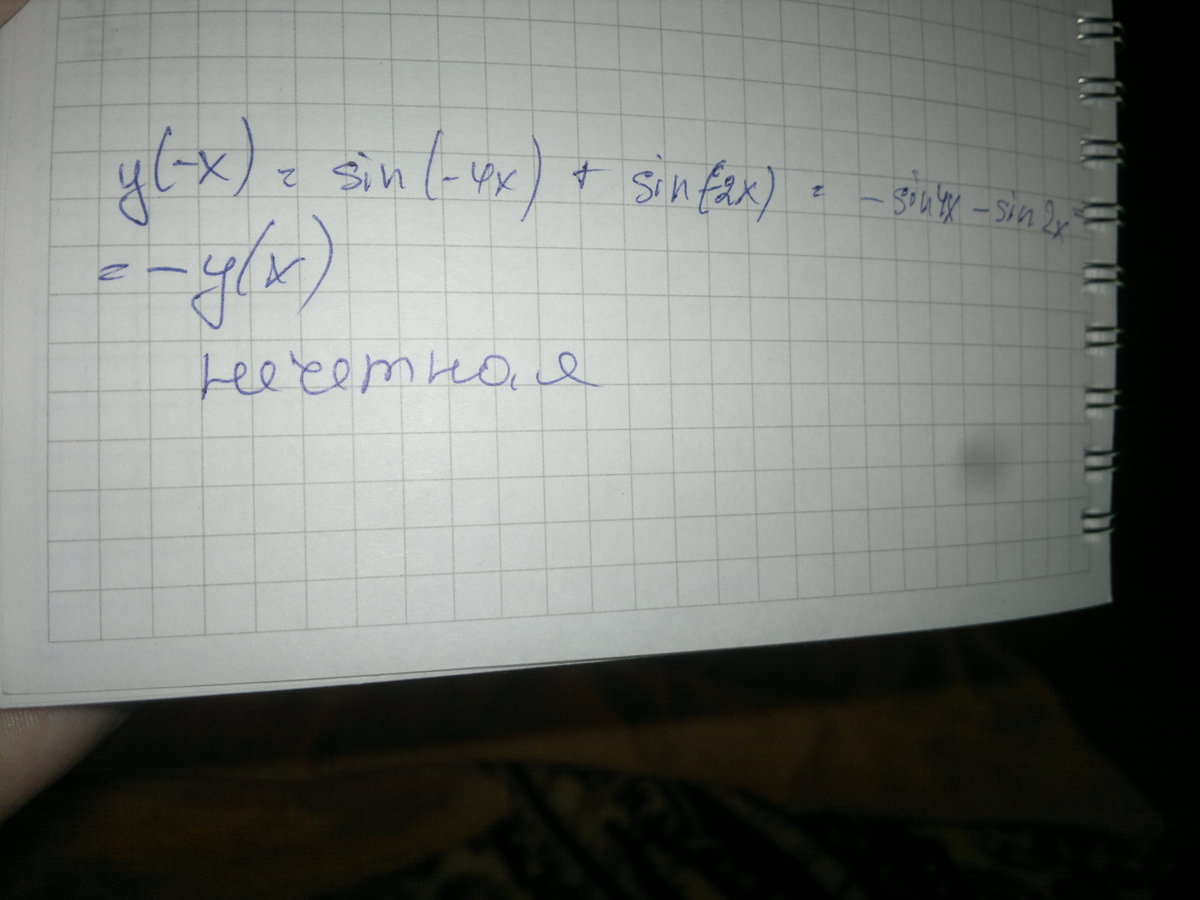 y(-x) = sin(-4x) + sin(-2x) = -sin4x - sin2x =
= -y(x)
нечетная